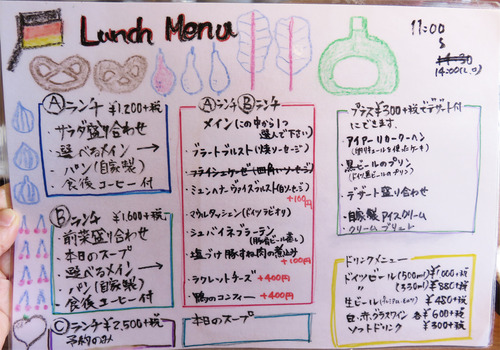 Lunch Menu
11:00
14:00(L.O)
Ⓐランチ ¥1200+税
・サラダ盛り合わせ
・選べるメイン→
・パン(自家製)
・食後コーヒー付
Ⓑランチ ¥1,600+税
・前菜盛り合わせ
・本日のスープ
・選べるメイン→
・パン(自家製)
・食後コーヒー付
Ⓒランチ ¥2,500+税
予約のみ
ⒶランチⒷランチ
メイン(この中から1つ
選んで下さい)
・ブラートブルスト(焼ソーセージ)
・フライシュケーゼ(四角いソーセージ)
・ミュンヘナーヴァイスブルスト(白ソーセージ)
+100円
・マウルタッシェン(ドイツラビオリ)
・シュバイネブラーテン
・塩づけ豚すね肉の煮込み
+100円
・ラクレットチーズ +400円
・鴨のコンフィー +400円
本日のスープ
プラス¥300+税でデザート付
にできます。
・黒ビールのプリン
(ドイツ黒ビールのプリン)
・デザート盛り合わせ
・自家製アイスクリーム
・クリームブリュレ
ドリンクメニュー
ドイツビール(500ml)¥1,000+税
〃(330ml)¥880+税
生ビール ¥480+税
白、赤、グラスワイン 各¥600+税
ソフトドリンク ¥300+税